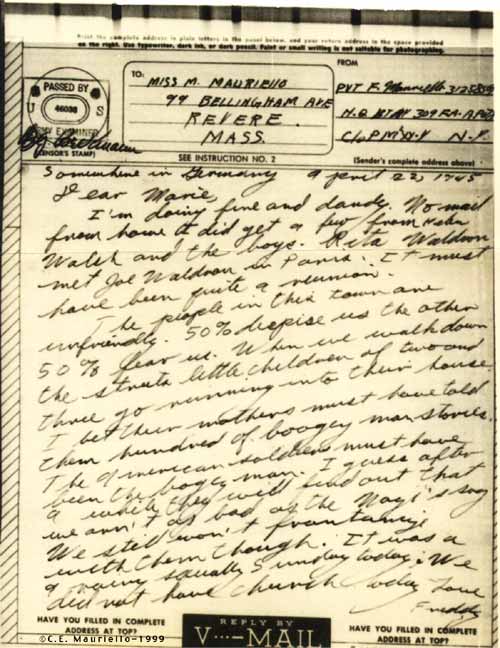 Print the complete address in plain letters in the panel below, and your return address in the space provided
on the right. Use typewriter, dark ink, or dark pencil. Faint or small writing is not suitable for photographing.
PASSED BY
U S
46038
ARMY EXAMINER
(CENSOR'S STAMP)
TO:
MISS M. MAURIELLO
99 BELLINGHAM AVE
REVERE
MASS.
SEE INSTRUCTION NO. 2
FROM
PVT F. Mauriello
H.Q. BTRY 309 FA-APO
C/o P.M. N.Y. N.Y.
(Sender's complete address above)
Somewhere in Germany April 22, 1945
Dear Marie,
I'm doing fine and dandy. No mail
from home. I did get a few from Helen
Walsh and the boys. Rita Waldron
met Joe Waldron in Paris. It must
have been quite a reunion.
The people in this town are
unfriendly. 50% despise us the other
50% fear us. When we walk down
the streets little children of two and
three go running into their house.
I bet their mothers must have told
them hundred of boogey man stories.
The American soldiers must have
been the bogey man. I guess after
a while they will find out that
we arn't as bad as the Nazi's say
We still won't
with them though. It was a
a rainy squally Sunday today. We
did not have church today Love
Freddy
HAVE YOU FILLED IN COMPLETE
ADDRESS AT TOP?
REPLY BY
V···—MAIL
HAVE YOU FILLED IN COMPLETE
ADDRESS AT TOP?
©C.E. Mauriello-1999